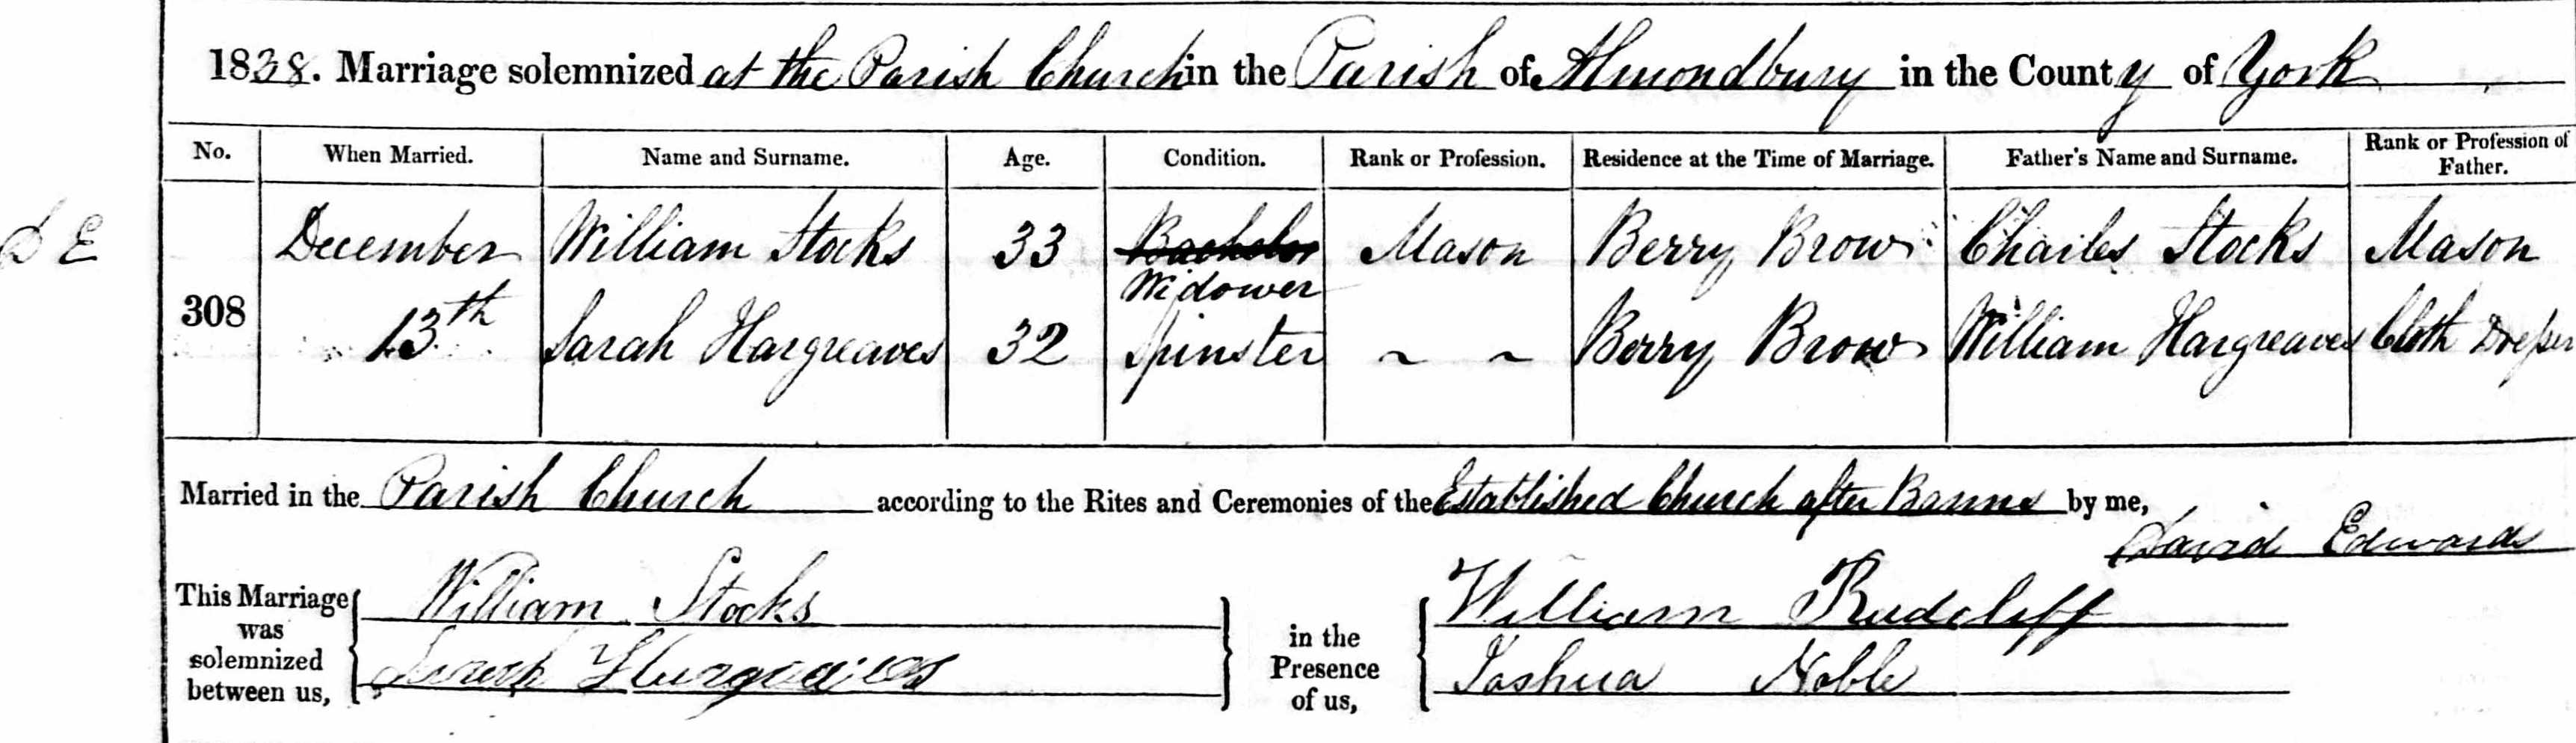 1838. Marriage solemnized at the Parish Church in the Parish of Almondbury in the County of York
No. When Married. Name and Surname. Age. Condition. Rank or Profession. Residence at the Time of Marriage. Father's Name and Surname. Rank or Profession of Father.
D E December William Stocks 33 Bachelor Mason Berry Brow Charles Stocks Mason
Widower
308 13th Sarah Hargreaves 32 Spinster ~ ~ Berry Brow William Hargreaves Cloth Dresser
Married in the Parish Church according to the Rites and Ceremonies of the Established Church after Banns by me,
David Edwards
This Marriage was solemnized between us, William Stocks in the Presence of us, William Rudcliff
Sarah Hurgreaves Joshua Noble